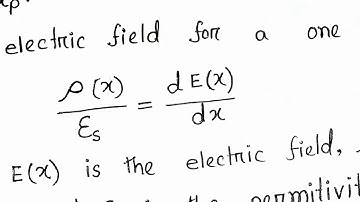 electric field for a one
ρ(x)/εs = dE(x)/dx
E(x) is the electric field,
the